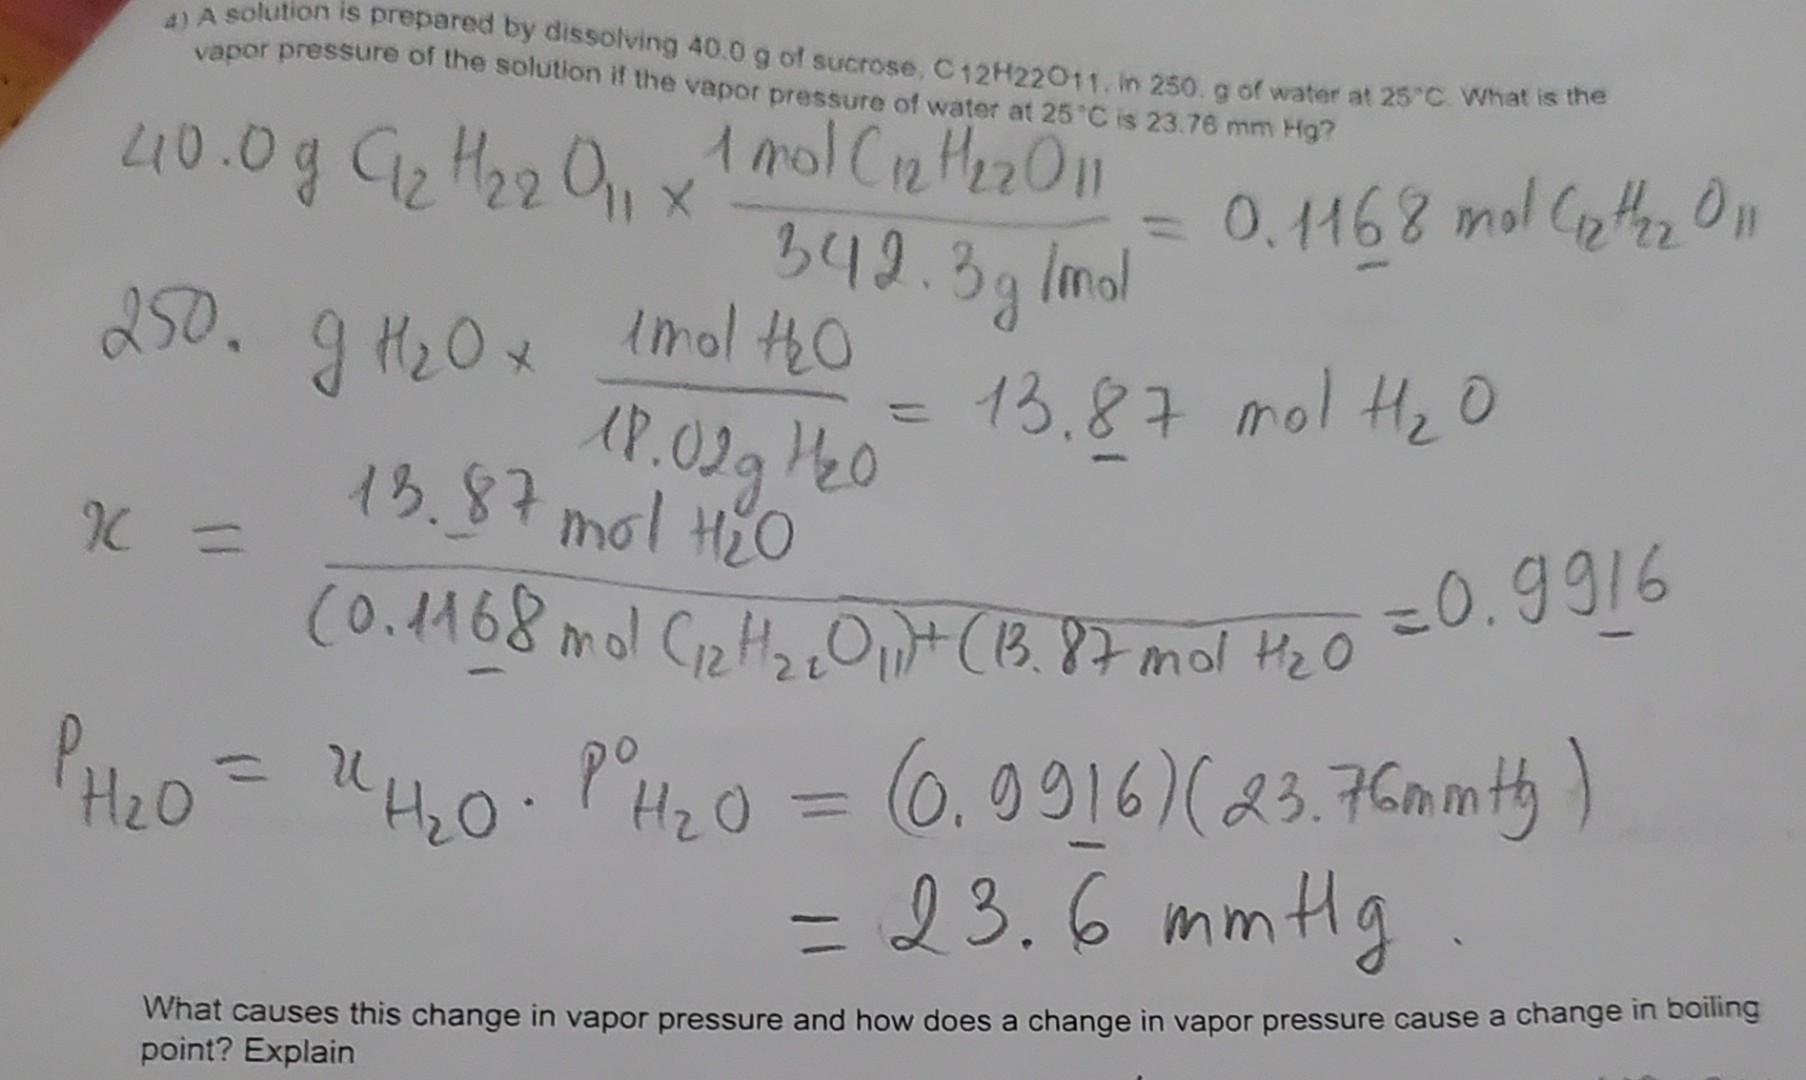 4) A solution is prepared by dissolving 40.0 g of sucrose, C12H22O11, in 250. g of water at 25°C. What is the
vapor pressure of the solution if the vapor pressure of water at 25°C is 23.76 mm Hg?
40.0 g C12H22O11 x 1 mol C12H22O11 / 342.3 g/mol = 0.1168 mol C12H22O11
250. g H2O x 1 mol H2O / 18.02 g H2O = 13.87 mol H2O
x = 13.87 mol H2O / (0.1168 mol C12H22O11) + (13.87 mol H2O = 0.9916
P H2O = x H2O · P° H2O = (0.9916)(23.76 mmHg)
= 23.6 mmHg.
What causes this change in vapor pressure and how does a change in vapor pressure cause a change in boiling
point? Explain